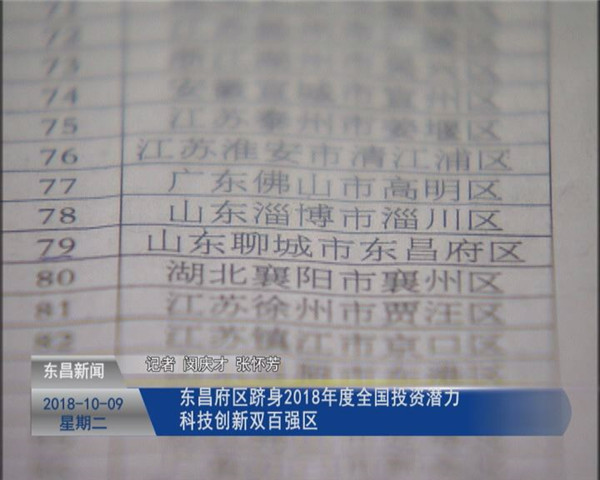 74 安徽宣城市宣州区
75 江苏泰州市姜堰区
76 江苏淮安市清江浦区
77 广东佛山市高明区
78 山东淄博市淄川区
79 山东聊城市东昌府区
80 湖北襄阳市襄州区
81 江苏徐州市贾汪区
82 江苏镇江市京口区
记者 闵庆才 张怀芳
东昌新闻
2018-10-09
星期二
东昌府区跻身2018年度全国投资潜力
科技创新双百强区